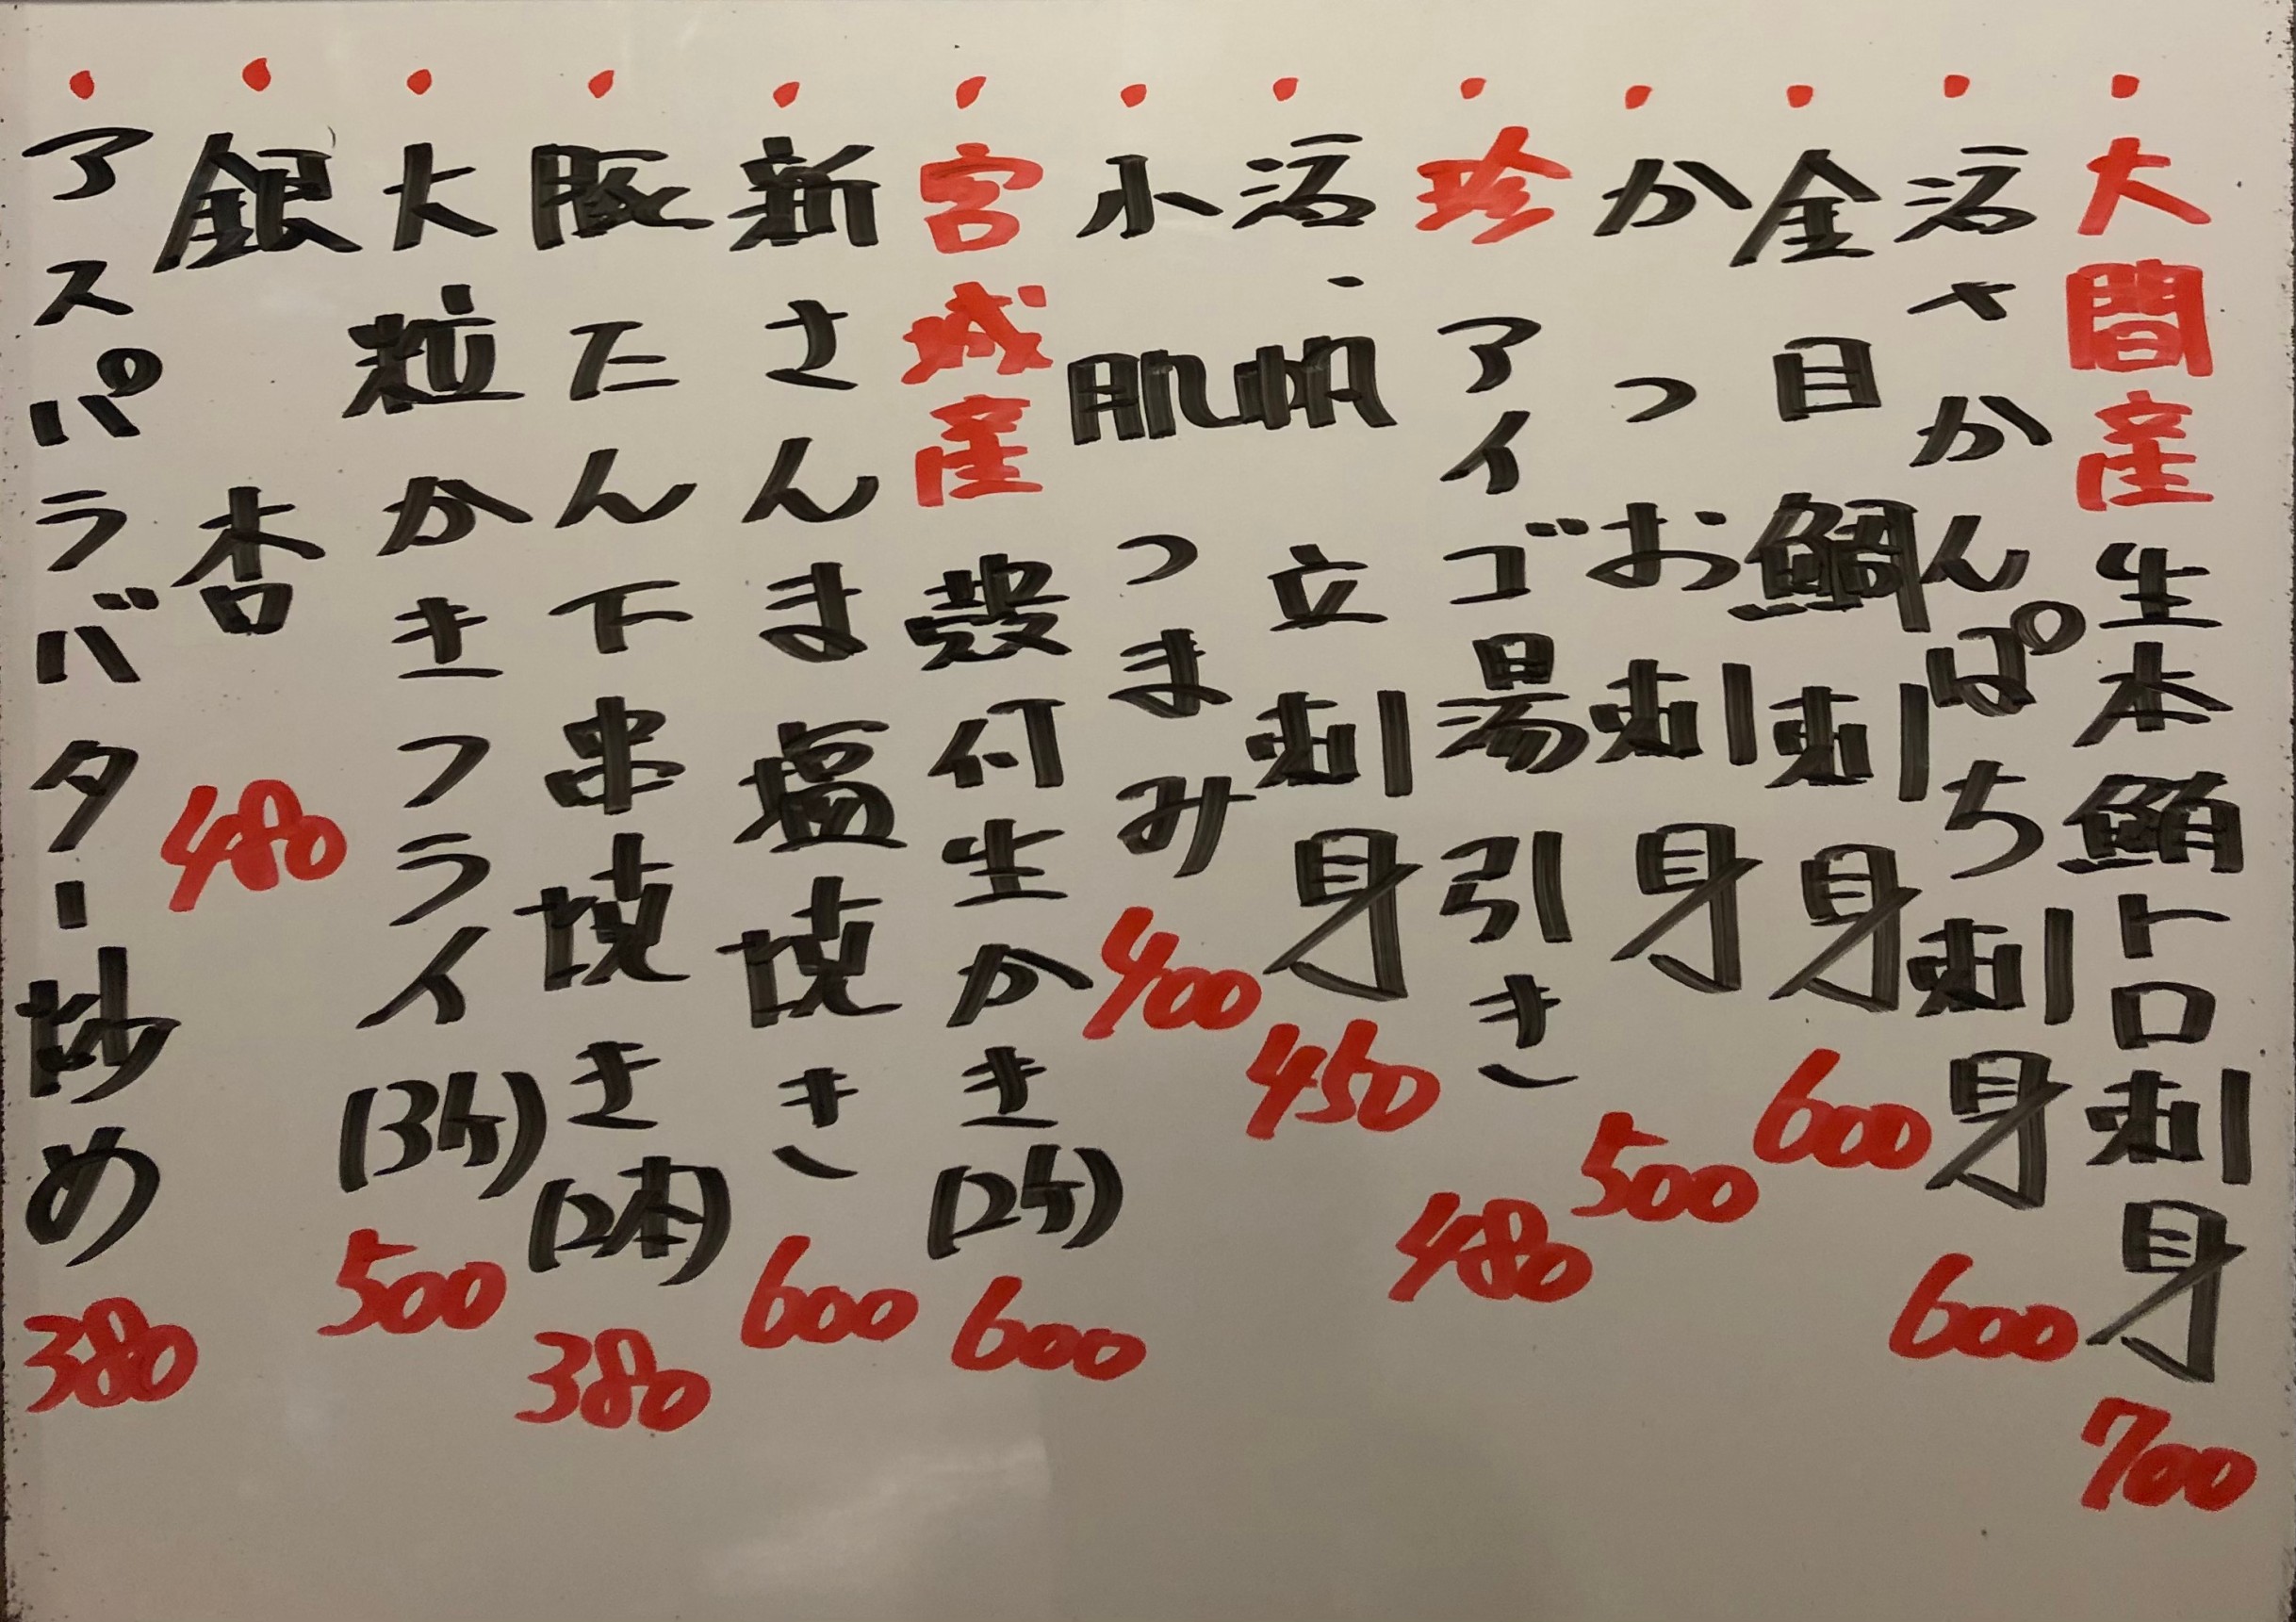 ・大間産生本鮪トロ刺身 700
・活〆かんぱち刺身 600
・金目鯛刺身 600
・かつお刺身 500
・珍アイゴ湯引き 480
・活・帆立刺身 450
・小肌つまみ 400
・宮城産殻付生かき(2ケ) 600
・新さんま塩焼き 600
・豚たん下串焼き(2本) 380
・大粒かきフライ(3ケ) 500
・銀杏 480
・アスパラバター炒め 380